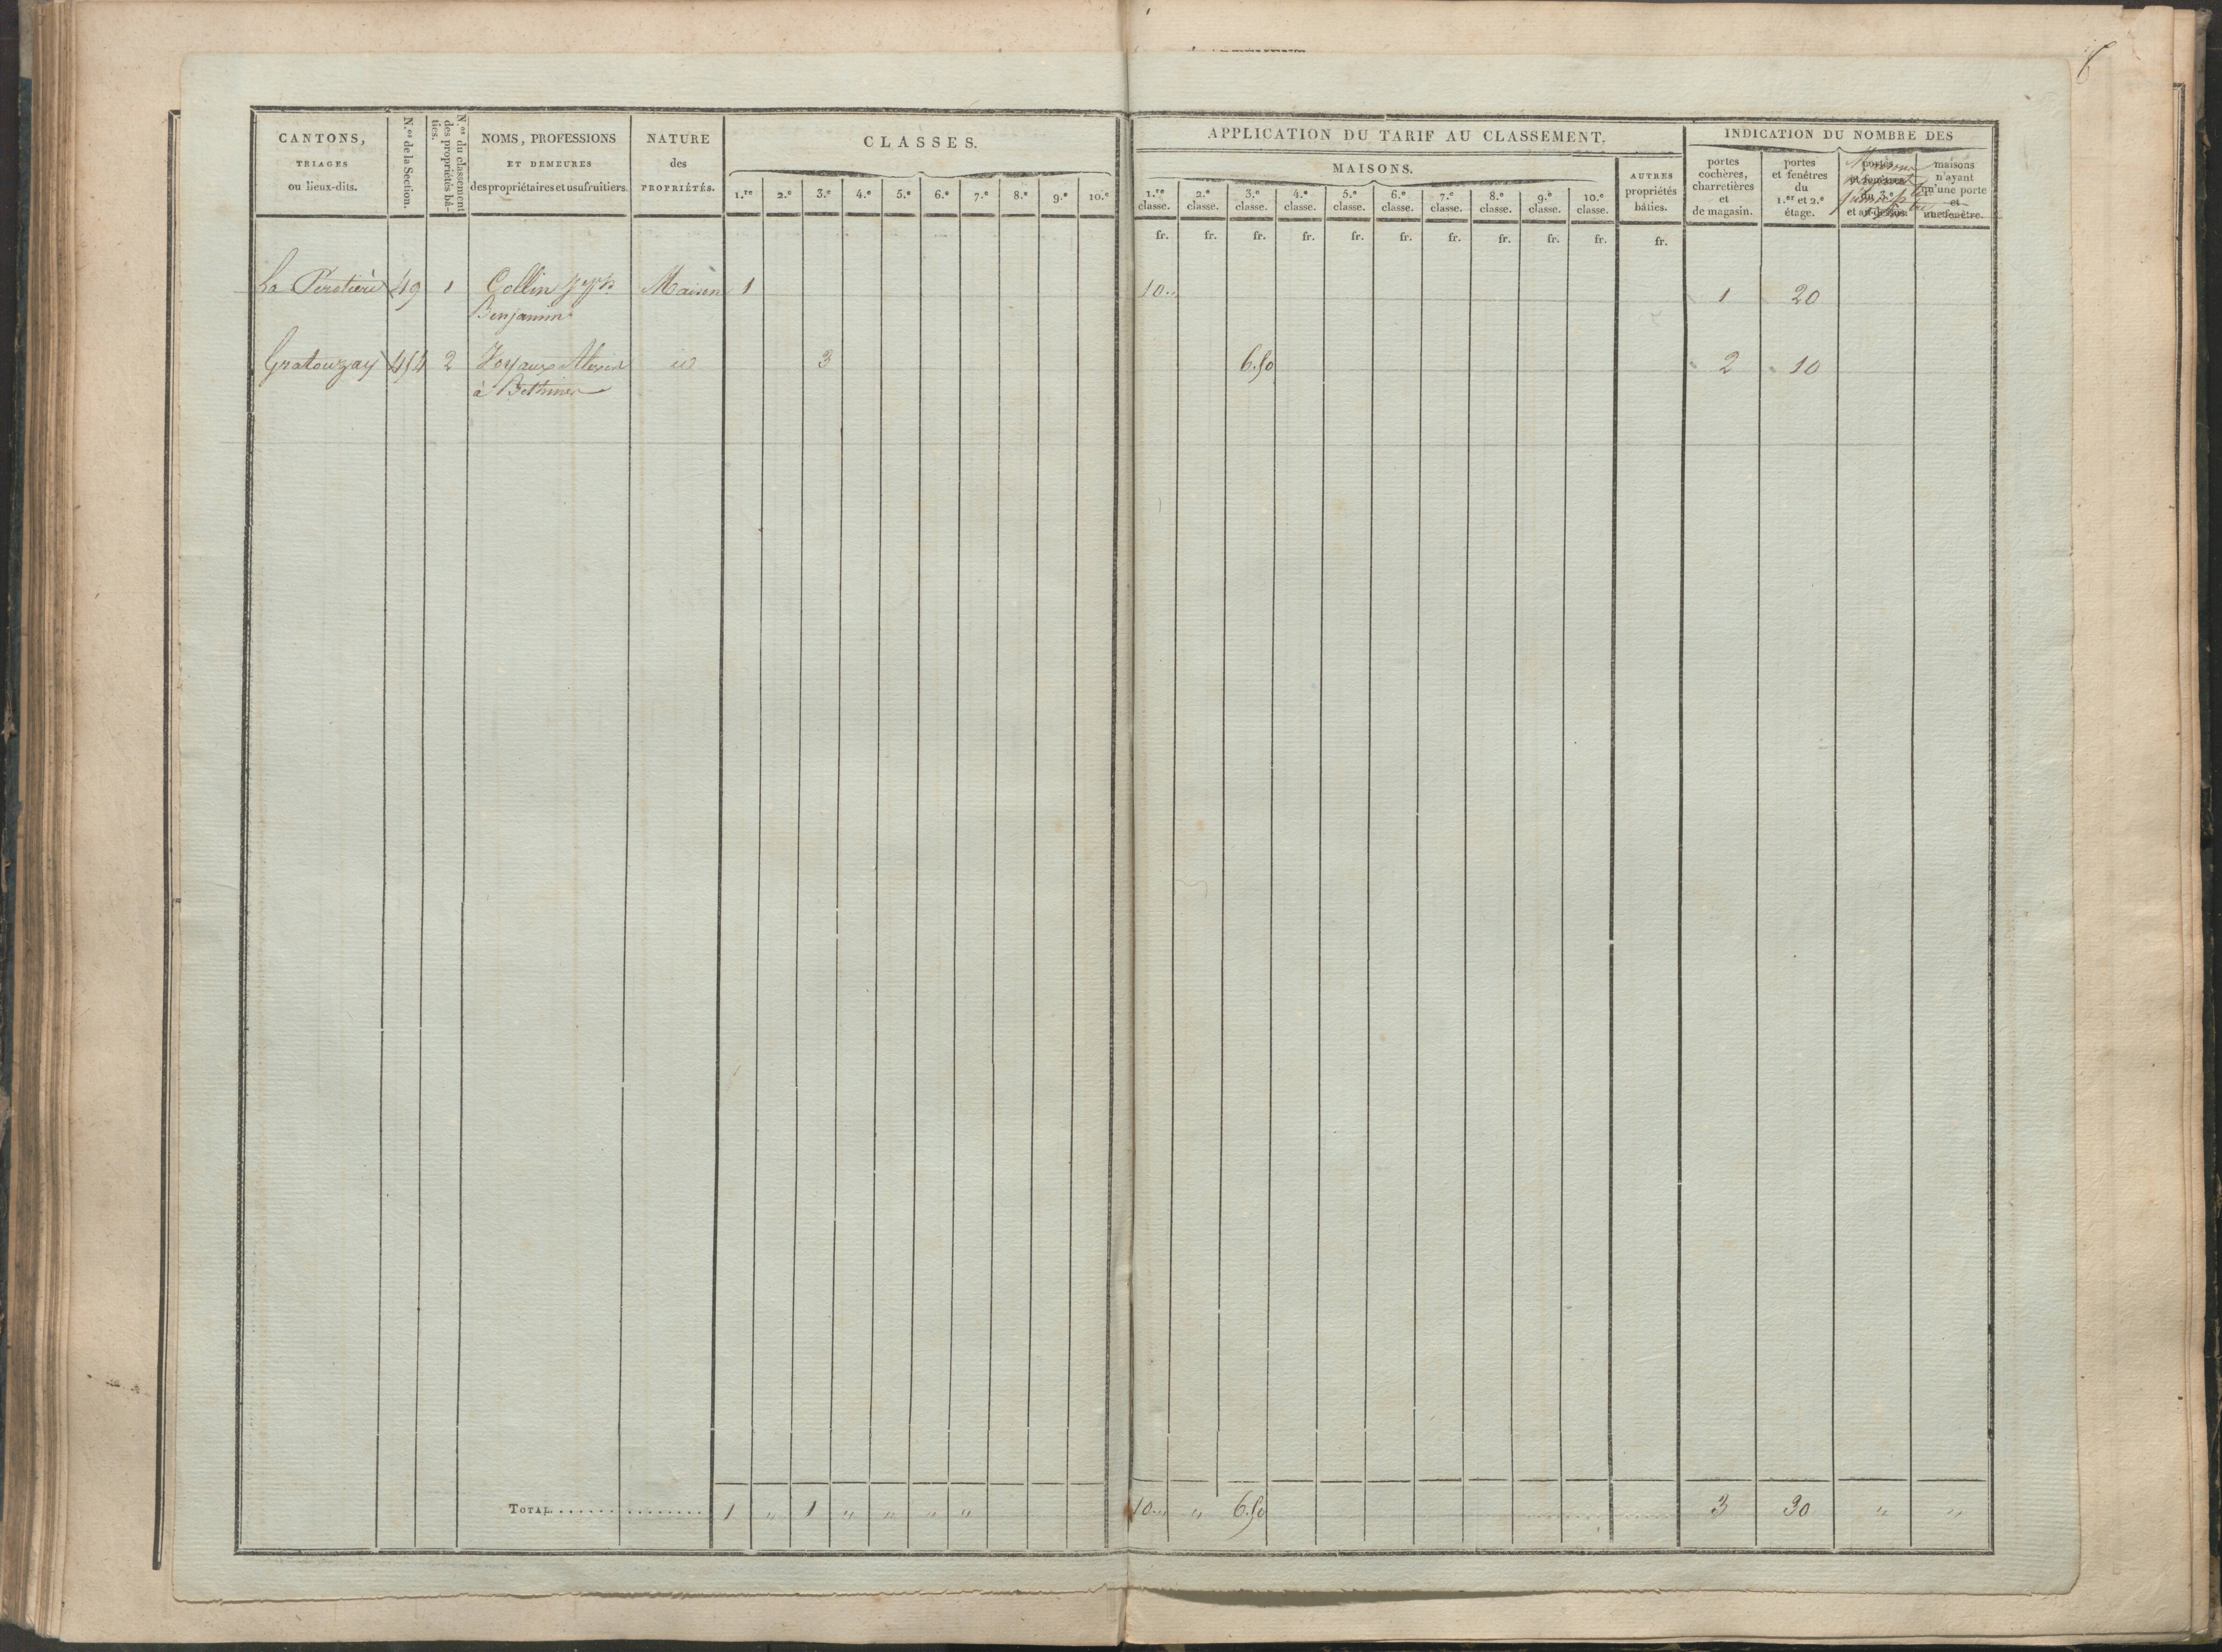 6
CANTONS,
TRIAGES
ou lieux-dits.
N.os de la Section.
N.os du classement
des propriétés bâ-
ties.
NOMS, PROFESSIONS
ET DEMEURES
des propriétaires et usufruitiers.
NATURE
des
PROPRIÉTÉS.
CLASSES.
1.re 2.e 3.e 4.e 5.e 6.e 7.e 8.e 9.e 10.e
APPLICATION DU TARIF AU CLASSEMENT.
MAISONS.
1.re classe. 2.e classe. 3.e classe. 4.e classe. 5.e classe. 6.e classe. 7.e classe. 8.e classe. 9.e classe. 10.e classe.
AUTRES
propriétés
bâties.
INDICATION DU NOMBRE DES
portes
cochères,
charretières
et
de magasin.
portes
et fenêtres
du
1.er et 2.e
étage.
portes
et fenêtres
du 3.e
et au-dessus
maisons
n'ayant
qu'une porte
et
une fenêtre.
fr. fr. fr. fr. fr. fr. fr. fr. fr. fr. fr.
49 1 Collin Maison 1 10 1 20
Benjamin
Gratouzay 454 2 Joyaux id 3 6.50 2 10
à Bethines
TOTAL 1 " 1 " " " " 10 " 6.50 3 30 " "